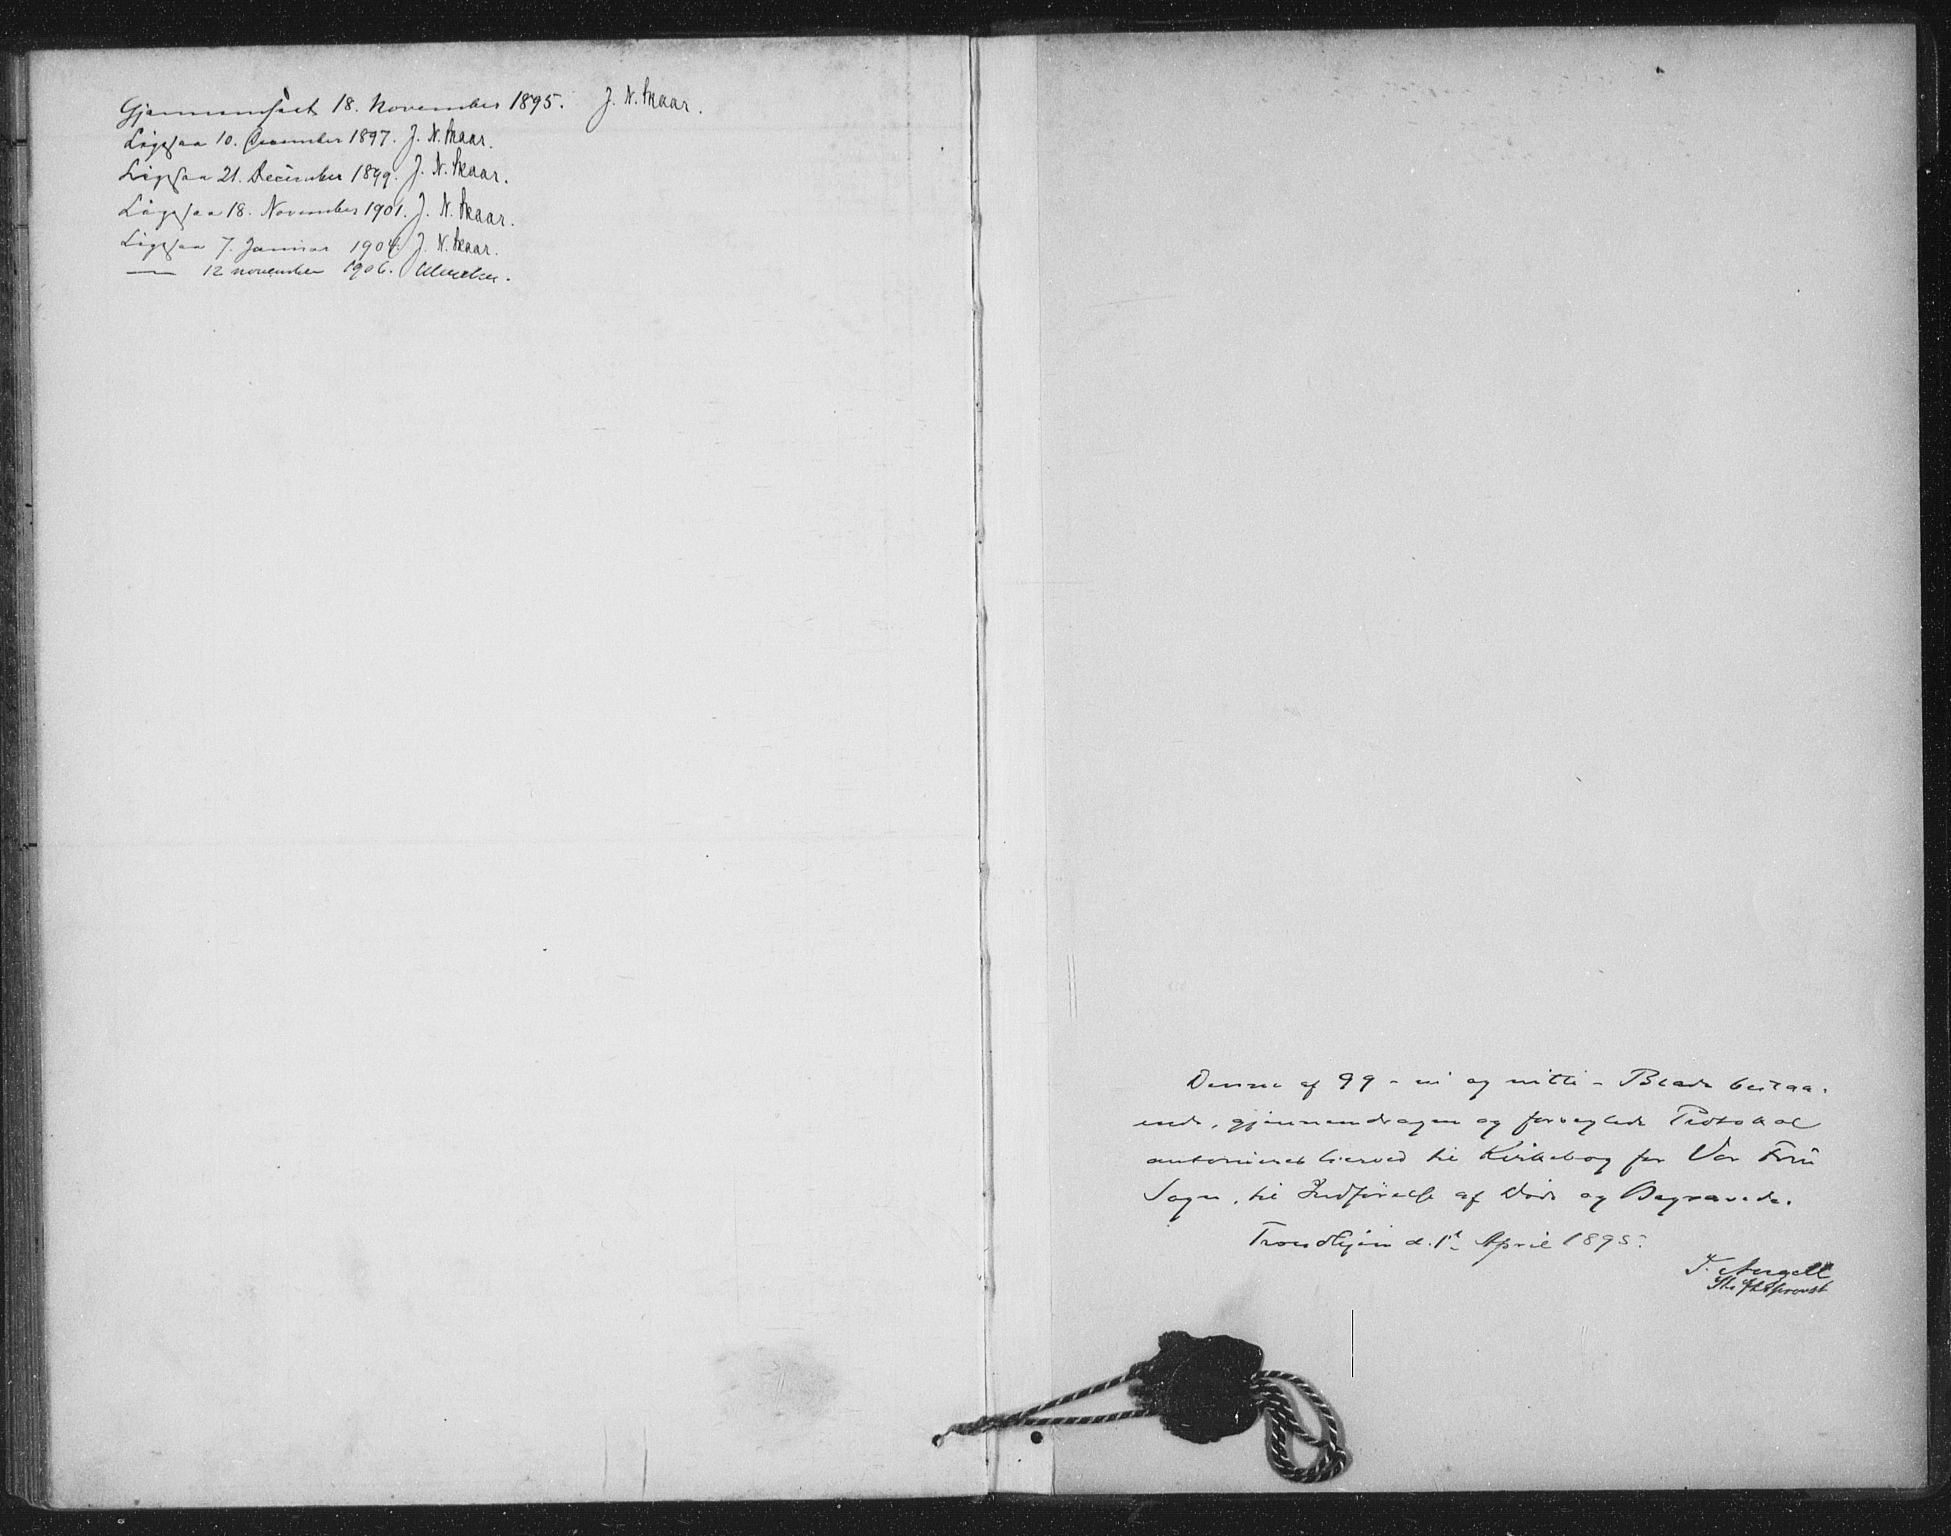 Gjennemseet 18. November 1895. J. N. Skaar.
Ligesaa 10. December 1897. J. N. Skaar.
Ligesaa 21. December 1899. J. N. Skaar.
Ligesaa 18. November 1901. J. N. Skaar.
Ligesaa 7. Januar 1904. J. N. Skaar.
— 12 november 1906.
Denne af 99 - ni og nitti - Blade bestaa-
ende, gjennemdragen og forseglede Protokol
autoriseres herved til Kirkebog for Vor Frue
Sogn, til Indførelse af Døde og Begravede.
Trondhjem d. 1st April 1895.
J. Angell
Stiftsprovst